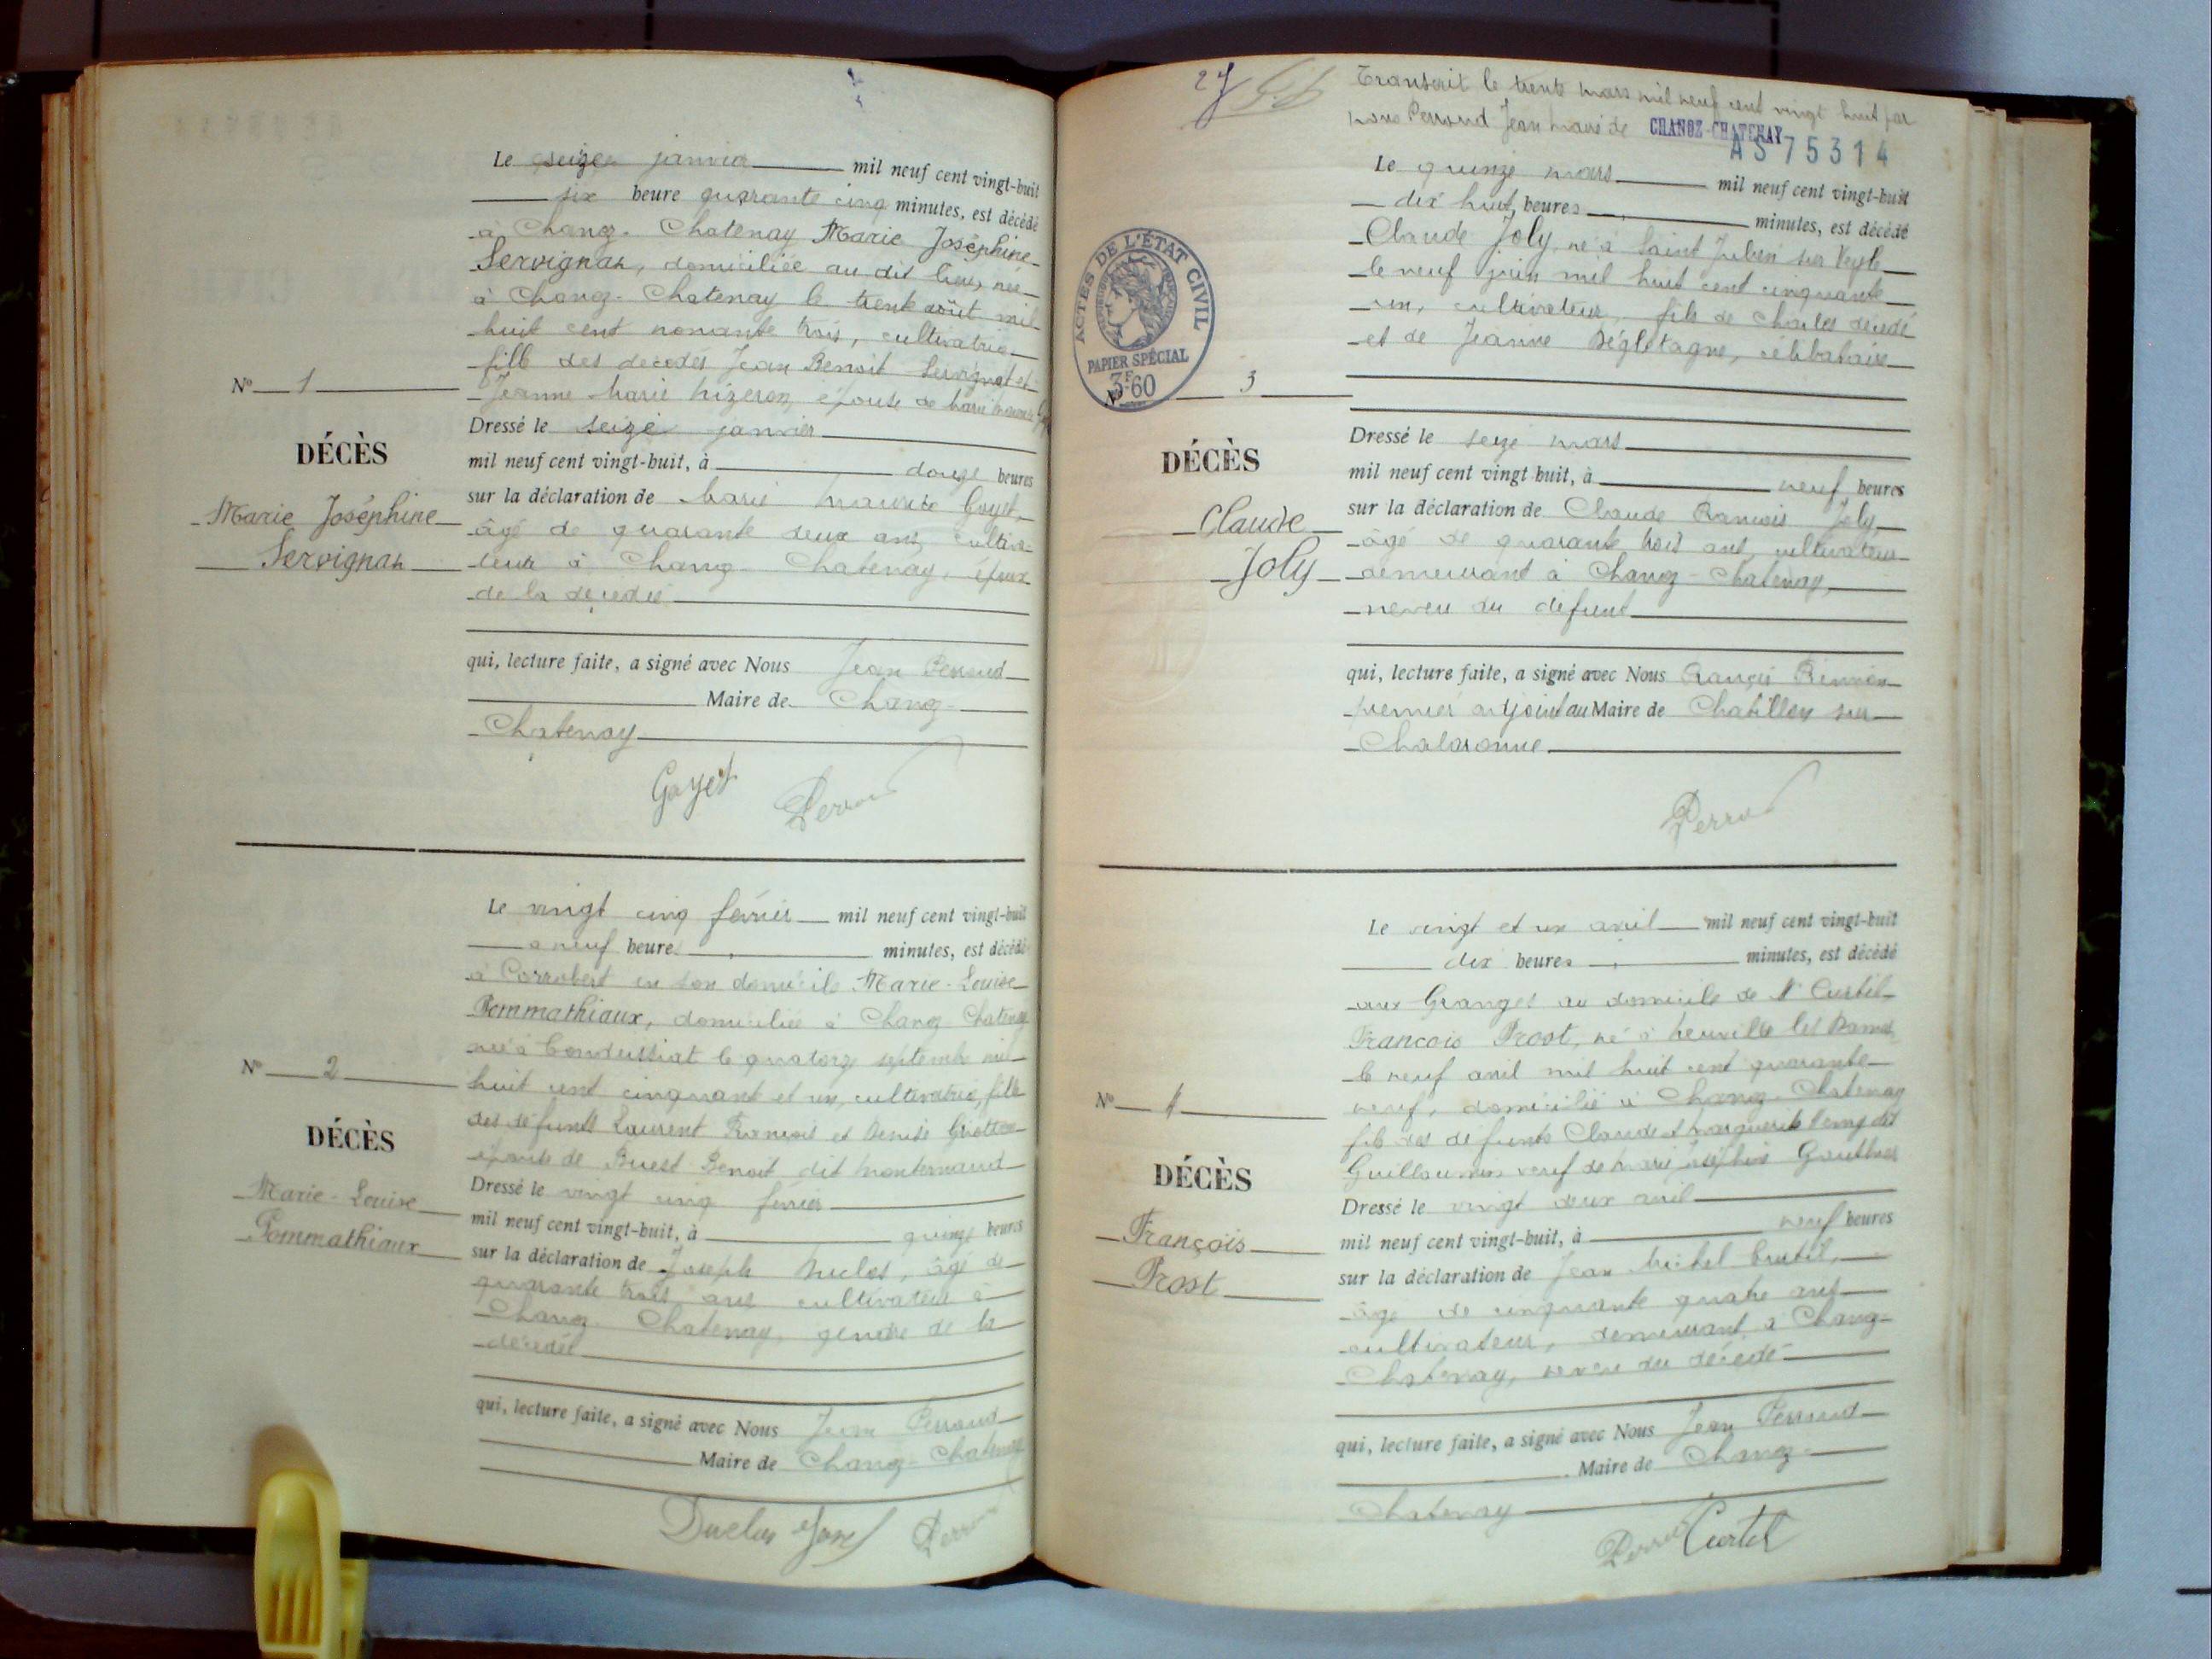 Le seize janvier mil neuf cent vingt-huit
six heure quarante cinq minutes, est décédé
à Chanoz-Chatenay Marie Joséphine
Servignat, domiciliée au dit lieu, née
à Chanoz-Chatenay le trente août mil
huit cent nonante trois, cultivatrice
fille des décédés Jean Benoit Servignat et
Jeanne Marie épouse de Marie Maurice
N° 1
DÉCÈS
Marie Joséphine
Servignat
Dressé le seize janvier
mil neuf cent vingt-huit, à douze heures
sur la déclaration de Marie Maurice Goyet,
âgé de quarante deux ans, cultiva-
teur à Chanoz Chatenay, époux
de la décédée
qui, lecture faite, a signé avec Nous Jean Perroud
Maire de Chanoz-
Chatenay
Goyet Perroud
Le vingt cinq février mil neuf cent vingt-huit
à neuf heures minutes, est décédé
à Corrobert en son domicile Marie-Louise
Pommathiaux, domiciliée à Chanoz Chatenay
née à Condeissiat le quatorze septembre mil
huit cent cinquante et un, cultivatrice, fille
des défunts Laurent François et Denise
épouse de Buest Benoit dit
N° 2
DÉCÈS
Marie-Louise
Pommathiaux
Dressé le vingt cinq février
mil neuf cent vingt-huit, à quinze heures
sur la déclaration de Joseph Duclos, âgé de
quarante trois ans cultivateur à
Chanoz Chatenay, gendre de la
décédée
qui, lecture faite, a signé avec Nous Jean Perroud
Maire de Chanoz-Chatenay
Duclos Perroud
27
Transcrit le trente mars mil neuf cent vingt huit par
nous Perroud Jean maire de CHANOZ-CHATENAY
AS75314
ACTES DE L'ÉTAT CIVIL
PAPIER SPÉCIAL
3F60
Le quinze mars mil neuf cent vingt-huit
dix huit heures minutes, est décédé
Claude Joly, né à Saint Julien sur Veyle
le neuf juin mil huit cent cinquante
un, cultivateur, fils de Charles décédé
et de Jeanne célibataire
N° 3
DÉCÈS
Claude
Joly
Dressé le seize mars
mil neuf cent vingt huit, à neuf heures
sur la déclaration de Claude François Joly
âgé de quarante trois ans, cultivateur
demeurant à Chanoz-Chatenay,
neveu du défunt
qui, lecture faite, a signé avec Nous
premier adjoint au Maire de Chatillon sur
Chalaronne
Perroud
Le vingt et un avril mil neuf cent vingt-huit
dix heures minutes, est décédé
aux Granges au domicile de Mr Curtil
François Prost, né à Neuville les Dames
le neuf avril mil huit cent quarante
neuf, domicilié à Chanoz-Chatenay
fils des défunts Claude et Marguerite
Guillaumin veuf de Marie Joséphine Gauthier
N° 4
DÉCÈS
François
Prost
Dressé le vingt deux avril
mil neuf cent vingt-huit, à neuf heures
sur la déclaration de Jean Michel Curtil,
âgé de cinquante quatre ans
cultivateur, demeurant à Chanoz-
Chatenay, neveu du décédé
qui, lecture faite, a signé avec Nous Jean Perroud
Maire de Chanoz-
Chatenay
Perroud Curtil